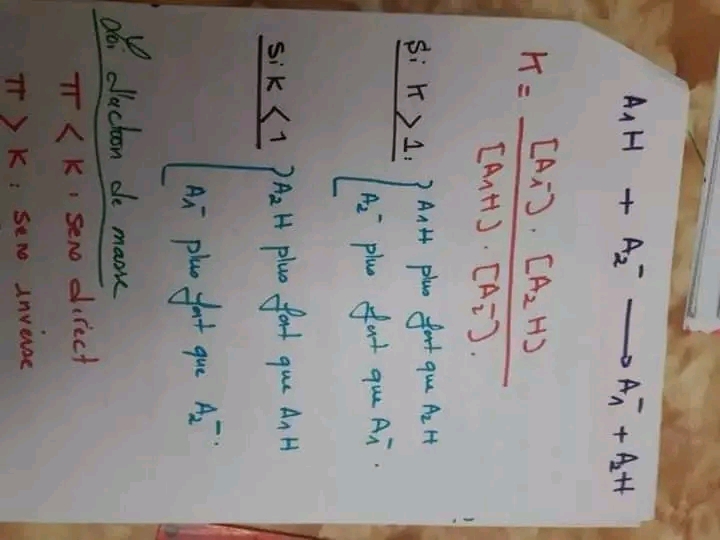 A₁H + A₂⁻ ⟶ A₁⁻ + A₂H
K = [A₁⁻] . [A₂H] / [A₁H] . [A₂⁻] .
Si K > 1 : { A₁H plus fort que A₂H
A₂⁻ plus fort que A₁⁻ .
Si K < 1 { A₂H plus fort que A₁H
A₁⁻ plus fort que A₂⁻ .
Loi d'action de masse
π < K : sens direct
π > K : sens inverse